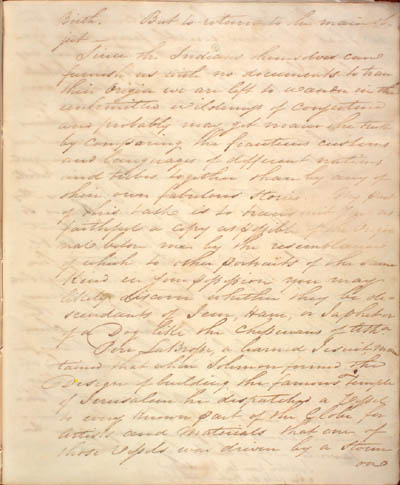 Birth. But to return to the main sub-
ject
Since the Indians themselves can
furnish us with no documents to trace
their Origin we are left to wander in the
unlimited wildering of Conjecture
and probably may get nearer the truth
by Comparing the features customs
and languages of different nations
and tribes together than by any of
their own fabulous Stories. My part
of this task is to transmit you as
faithful a copy as possible of the Origi-
nal before me by the resemblance
of which to other portraits of the same
Kind in your possession you may
likely discover whether they be de-
scendants of Sem, Ham, or Japhet or
of a Dog like the
Pere La a learned Jesuit main-
tained that when Solomon formed the
Design of building the famous Temple
of Jerusalem he dispatched a Vessel
to every known part of the Globe, for
Artists and materials that one of
those Vessels was driven by a Storm
on a